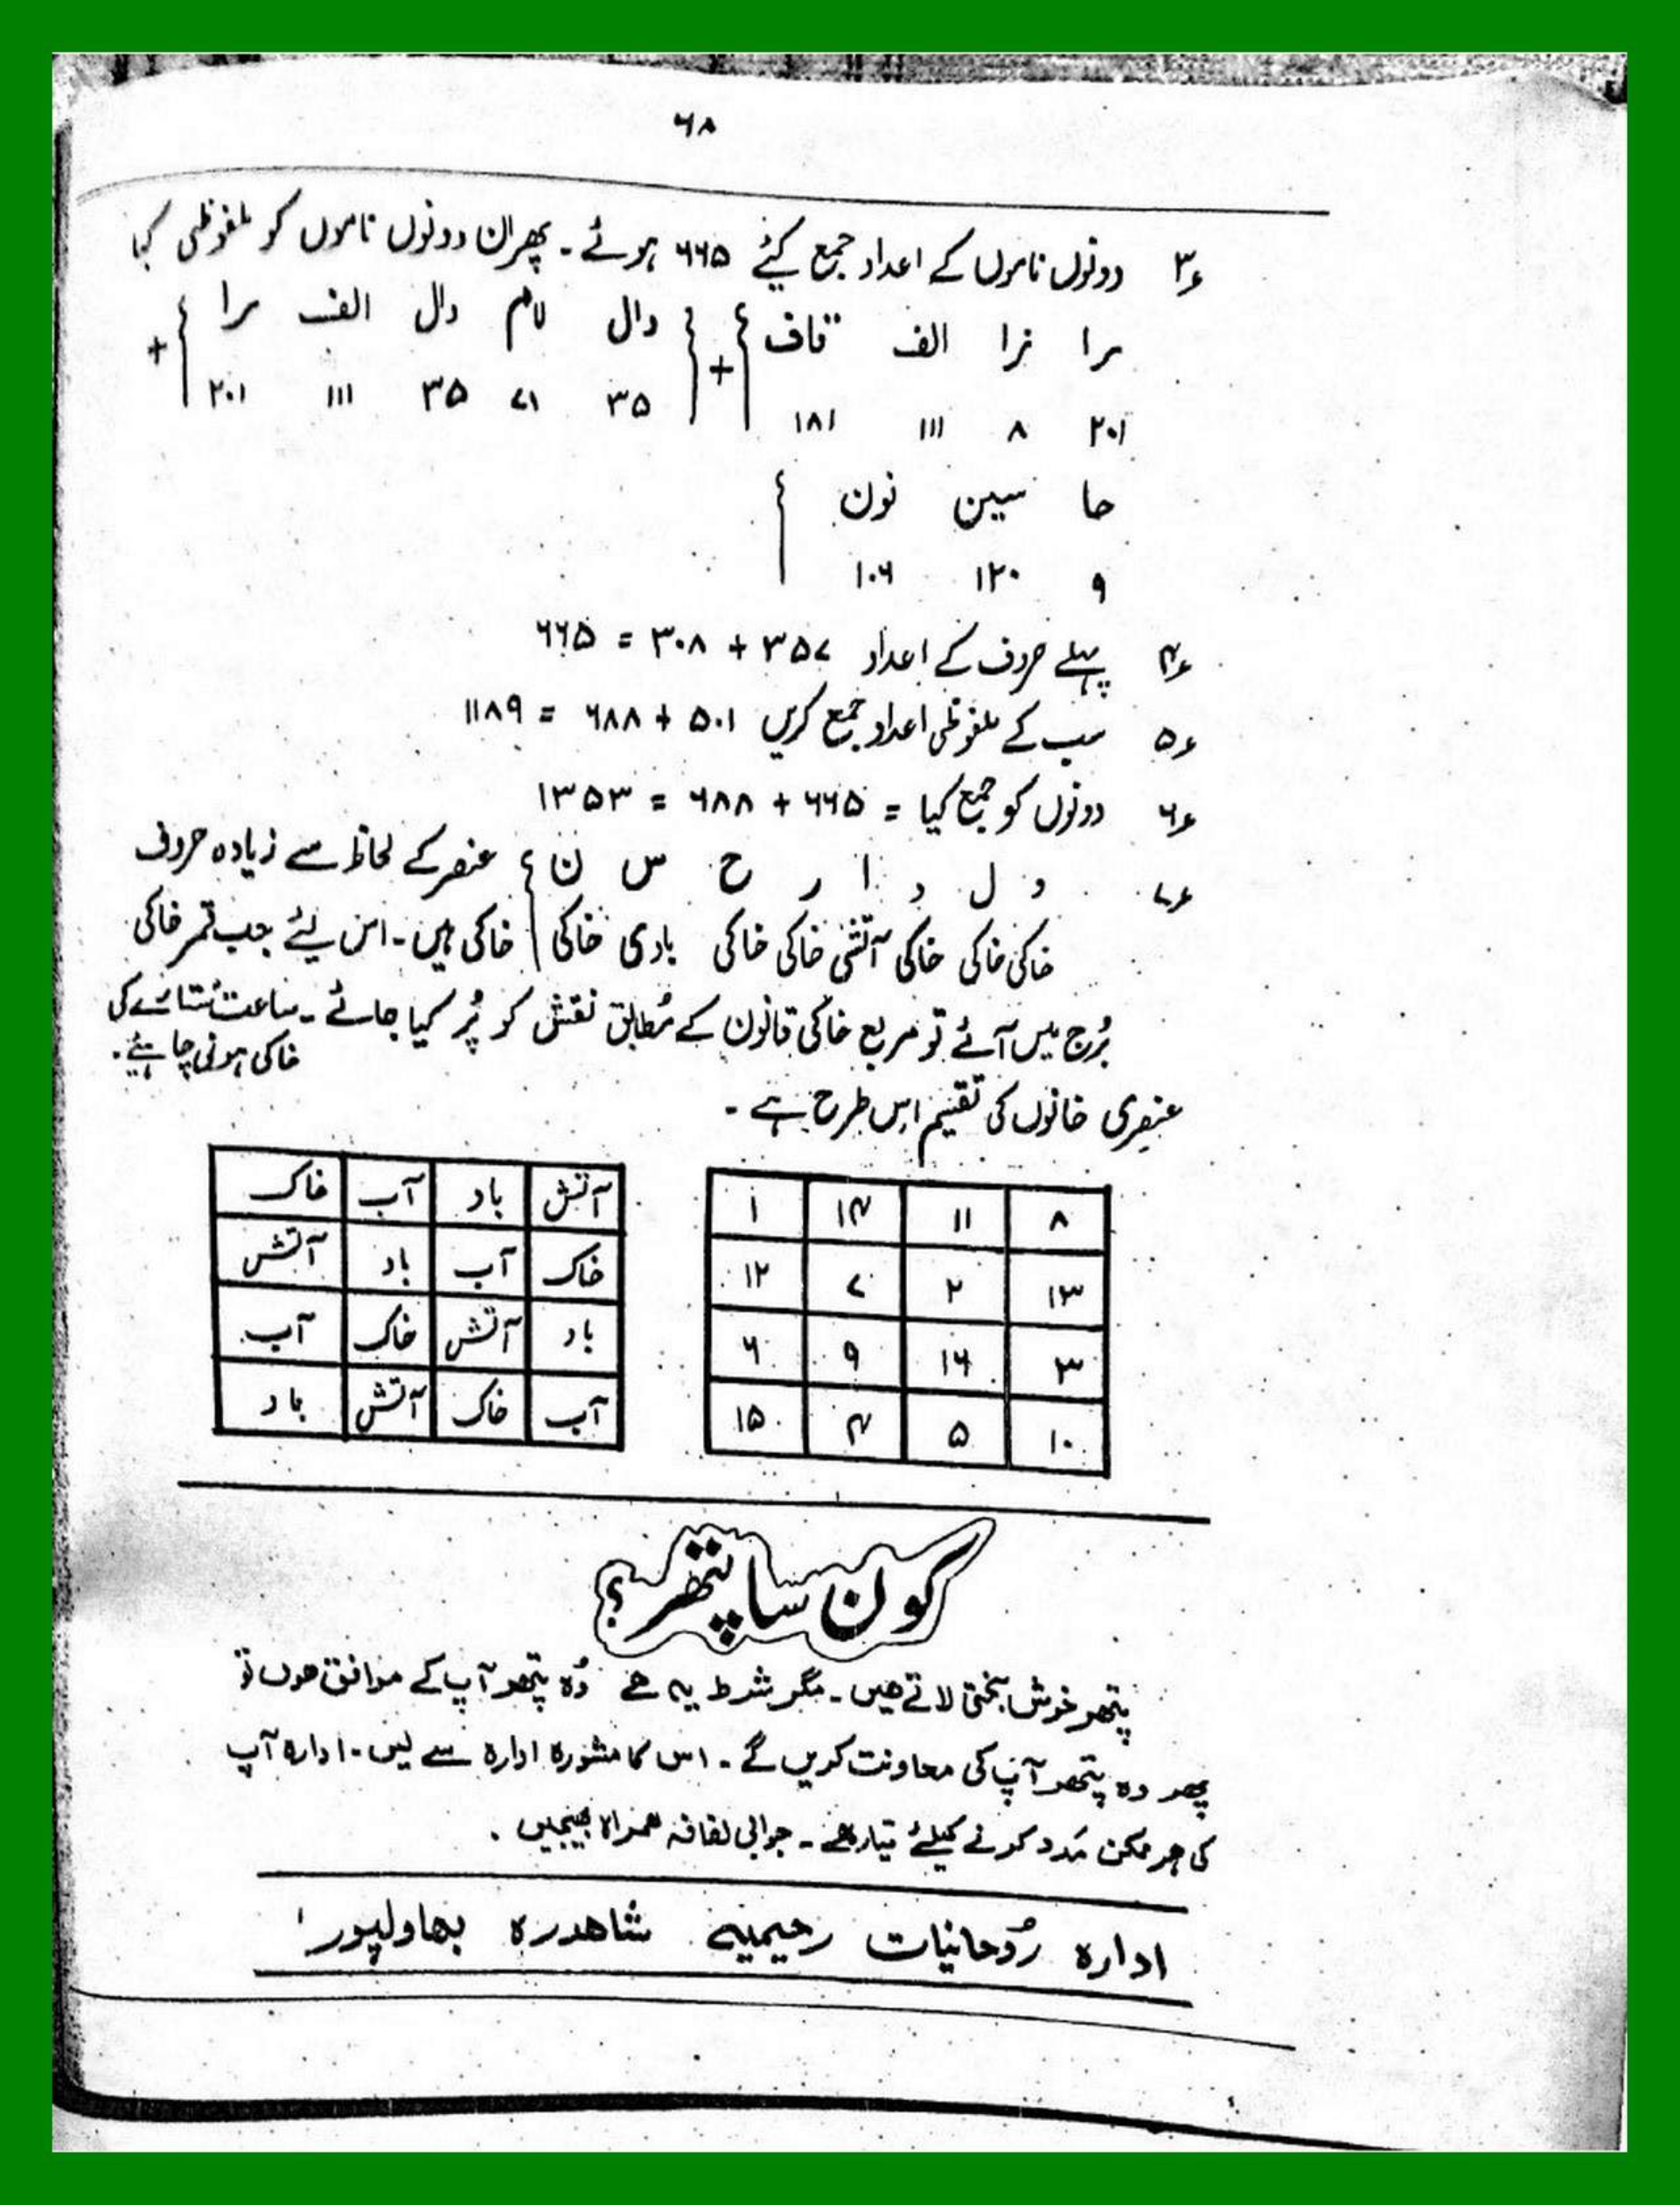 ۶۸
۳؏ دونوں ناموں کے اعداد جمع کئے ۶۶۵ ہوئے ۔ پھر ان دونوں ناموں کو ملفوظی کیا
را زا الف قاف } + { دال لام دال الف را } +
۲۰۱ ۸ ۱۱۱ ۱۸۱ ۳۵ ۷۱ ۳۵ ۱۱۱ ۲۰۱
حا سین نون }
۹ ۱۲۰ ۱۰۶
۴؏ پہلے حروف کے اعداد ۳۵۷ + ۳۰۸ = ۶۶۵
۵؏ سب کے ملفوظی اعداد جمع کریں ۵۰۱ + ۶۸۸ = ۱۱۸۹
۶؏ دونوں کو جمع کیا = ۶۶۵ + ۶۸۸ = ۱۳۵۳
۷؏ د ل د ا ر ح س ن } عنصر کے لحاظ سے زیادہ حروف
خاکی خاکی خاکی آتشی خاکی خاکی بادی خاکی } خاکی ہیں ۔ اس لیئے جب قمر خاکی
بُرج میں آئے تو مربع خاکی قانون کے مُطابق نقش کو پُر کیا جائے ۔ ساعت ستارے کی
خاکی ہونی چاہیئے ۔
عنصری خانوں کی تقسیم اس طرح ہے ۔
۸ ۱۱ ۱۴ ۱
۱۳ ۲ ۷ ۱۲
۳ ۱۶ ۹ ۶
۱۰ ۵ ۴ ۱۵
آتش باد آب خاک
خاک آب باد آتش
باد آتش خاک آب
آب خاک آتش باد
کون سا پتھر؟
پتھر خوش بختی لاتے ہیں ۔ مگر شرط یہ ہے وُہ پتھر آپ کے موافق ہوں تو
پھر وہ پتھر آپ کی معاونت کریں گے ۔ اس کا مشورہ ادارہ سے لیں ۔ ادارہ آپ
کی ہر ممکن مَدد کرنے کیلئے تیار ہے ۔ جوابی لفافہ ہمراہ بھیجیں ۔
ادارہ رُوحانیات رحیمیہ شاھدرہ بھاولپور